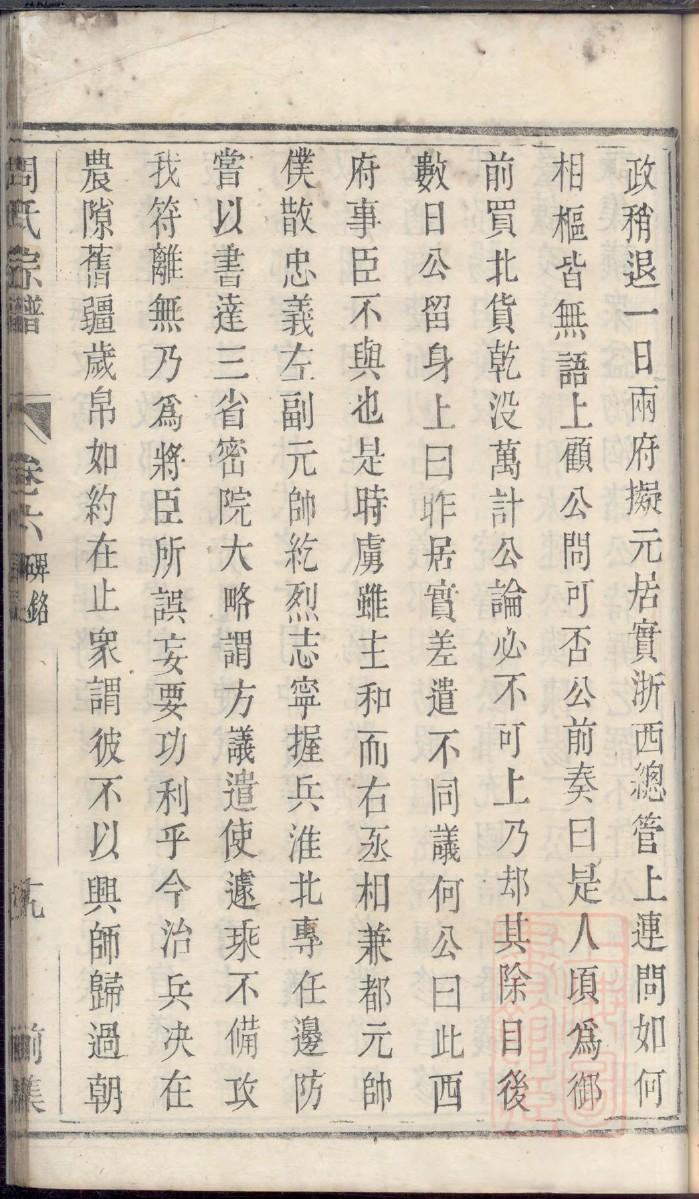 政稍退一日兩府擬元居實浙西總管上連問如何
相樞皆無語上顧公問可否公前奏曰是人頃爲御
前買北貨乾没萬計公論必不可上乃却其除目後
數日公留身上曰昨居實差遣不同議何公曰此西
府事臣不與也是時虜雖主和而右丞相兼都元帥
僕散忠義左副元帥紇烈志寧握兵淮北專任邊防
嘗以書達三省密院大略謂方議遣使遽乘不備攻
我符離無乃爲將臣所誤妄要功利乎今治兵决在
農隙舊疆歲帛如約在止衆謂彼不以興師歸過朝
周氏宗譜
卷六
碑銘
前集